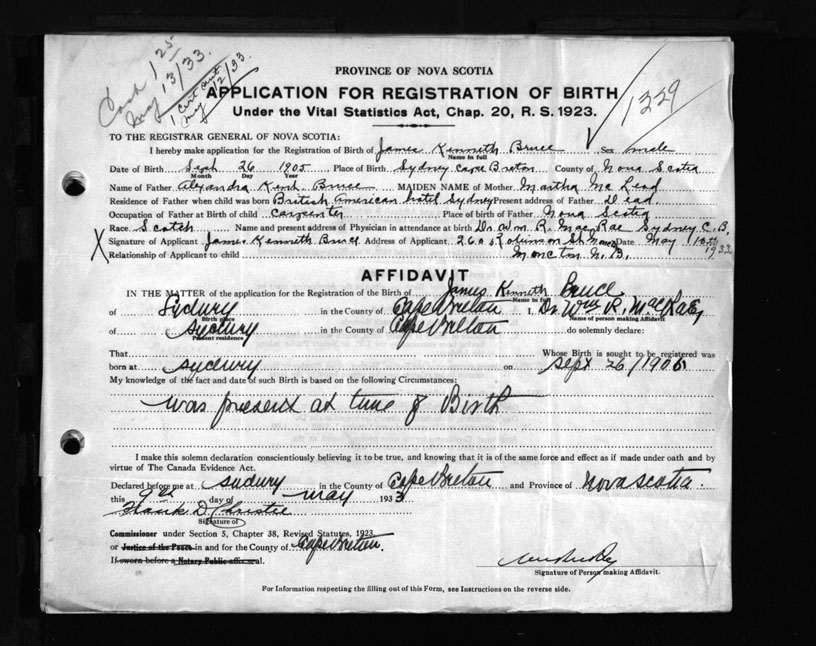 Cash 1 25
May 13/33.
1 Cert out
May 12/33
1229
PROVINCE OF NOVA SCOTIA
APPLICATION FOR REGISTRATION OF BIRTH
Under the Vital Statistics Act, Chap. 20, R. S. 1923.
TO THE REGISTRAR GENERAL OF NOVA SCOTIA:
I hereby make application for the Registration of Birth of James Kenneth Bruce Sex male
Name in full
Date of Birth Sept 26 1905 Place of Birth Sydney Cape Breton County of Nova Scotia
Month Day Year
Name of Father Alexandra Bruce MAIDEN NAME of Mother Martha Mc Leod
Residence of Father when child was born British American hotel Sydney Present address of Father Dead
Occupation of Father at Birth of child carpenter Place of birth of Father Nova Scotia
Race Scotch Name and present address of Physician in attendance at birth Dr Wm. R. MacRae Sydney C. B.
X Signature of Applicant James Kenneth Bruce Address of Applicant Robinson St Date May 10th
Relationship of Applicant to child Moncton N. B. 1933
AFFIDAVIT
IN THE MATTER of the application for the Registration of the Birth of James Kenneth Bruce
Name in full
of Sydney in the County of Cape Breton I, Dr Wm R. MacRae,
Birth place Name of person making Affidavit
of Sydney in the County of Cape Breton do solemnly declare:
Present residence
That Whose Birth is sought to be registered was
born at Sydney on Sept 26/1905
My knowledge of the fact and date of such Birth is based on the following Circumstances:
was present at time of Birth
I make this solemn declaration conscientiously believing it to be true, and knowing that it is of the same force and effect as if made under oath and by
virtue of The Canada Evidence Act.
Declared before me at Sydney in the County of Cape Breton and Province of Nova Scotia.
this 9th day of May 1933
Christie
Signature of
Commissioner under Section 5, Chapter 38, Revised Statutes, 1923.
or Justice of the Peace in and for the County of Cape Breton.
If sworn before a Notary Public affix seal.
Signature of Person making Affidavit.
For Information respecting the filling out of this Form, see Instructions on the reverse side.